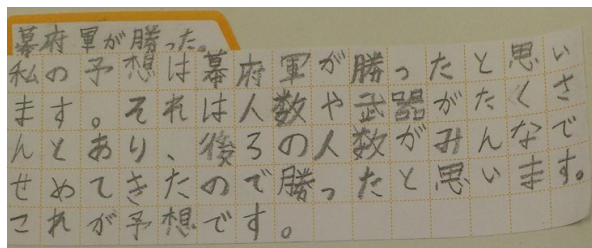 幕府軍が勝った。
私の予想は幕府軍が勝ったと思い
ます。それは人数や武器がたくさ
んとあり、後ろの人数がみんなで
せめてきたので勝ったと思います。
これが予想です。